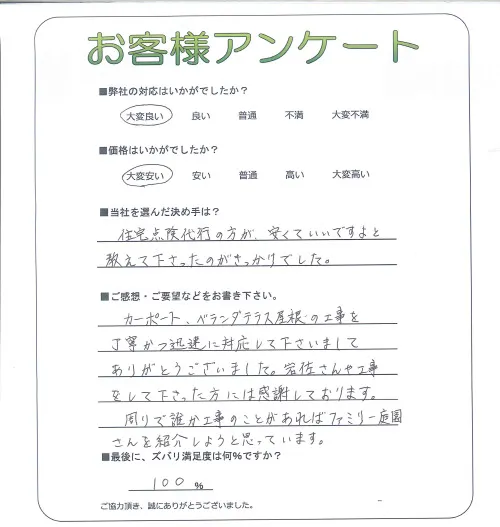 お客様アンケート
■弊社の対応はいかがでしたか?
大変良い 良い 普通 不満 大変不満
■価格はいかがでしたか?
大変安い 安い 普通 高い 大変高い
■当社を選んだ決め手は?
住宅点検代行の方が、安くていいですよと
教えて下さったのがきっかけでした。
■ご感想・ご要望などをお書き下さい。
カーポート、ベランダテラス屋根の工事を
丁寧かつ迅速に対応して下さいまして
ありがとうございました。岩佐さんや工事
をして下さった方には感謝しております。
周りで誰か工事のことがあればファミリー庭園
さんを紹介しようと思っています。
■最後に、ズバリ満足度は何%ですか?
100 %
ご協力頂き、誠にありがとうございました。